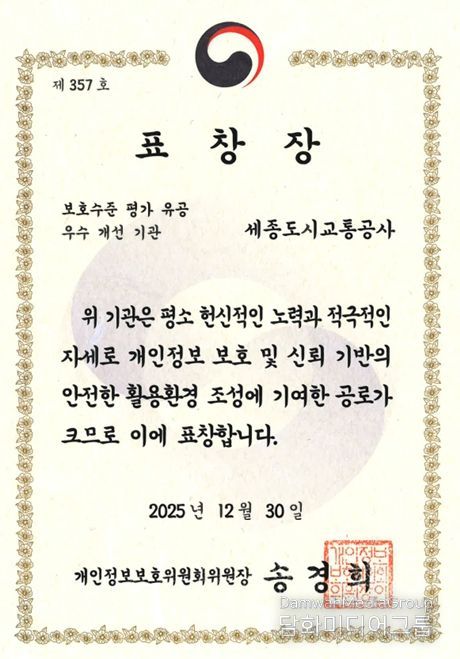 제 357 호
표 창 장
보호수준 평가 유공
우수 개선 기관
세종도시교통공사
위 기관은 평소 헌신적인 노력과 적극적인
자세로 개인정보 보호 및 신뢰 기반의
안전한 활용환경 조성에 기여한 공로가
크므로 이에 표창합니다.
2025년 12월 30일
개인정보보호위원회위원장 송경희
DamwhaMediaGroup
담화미디어그룹